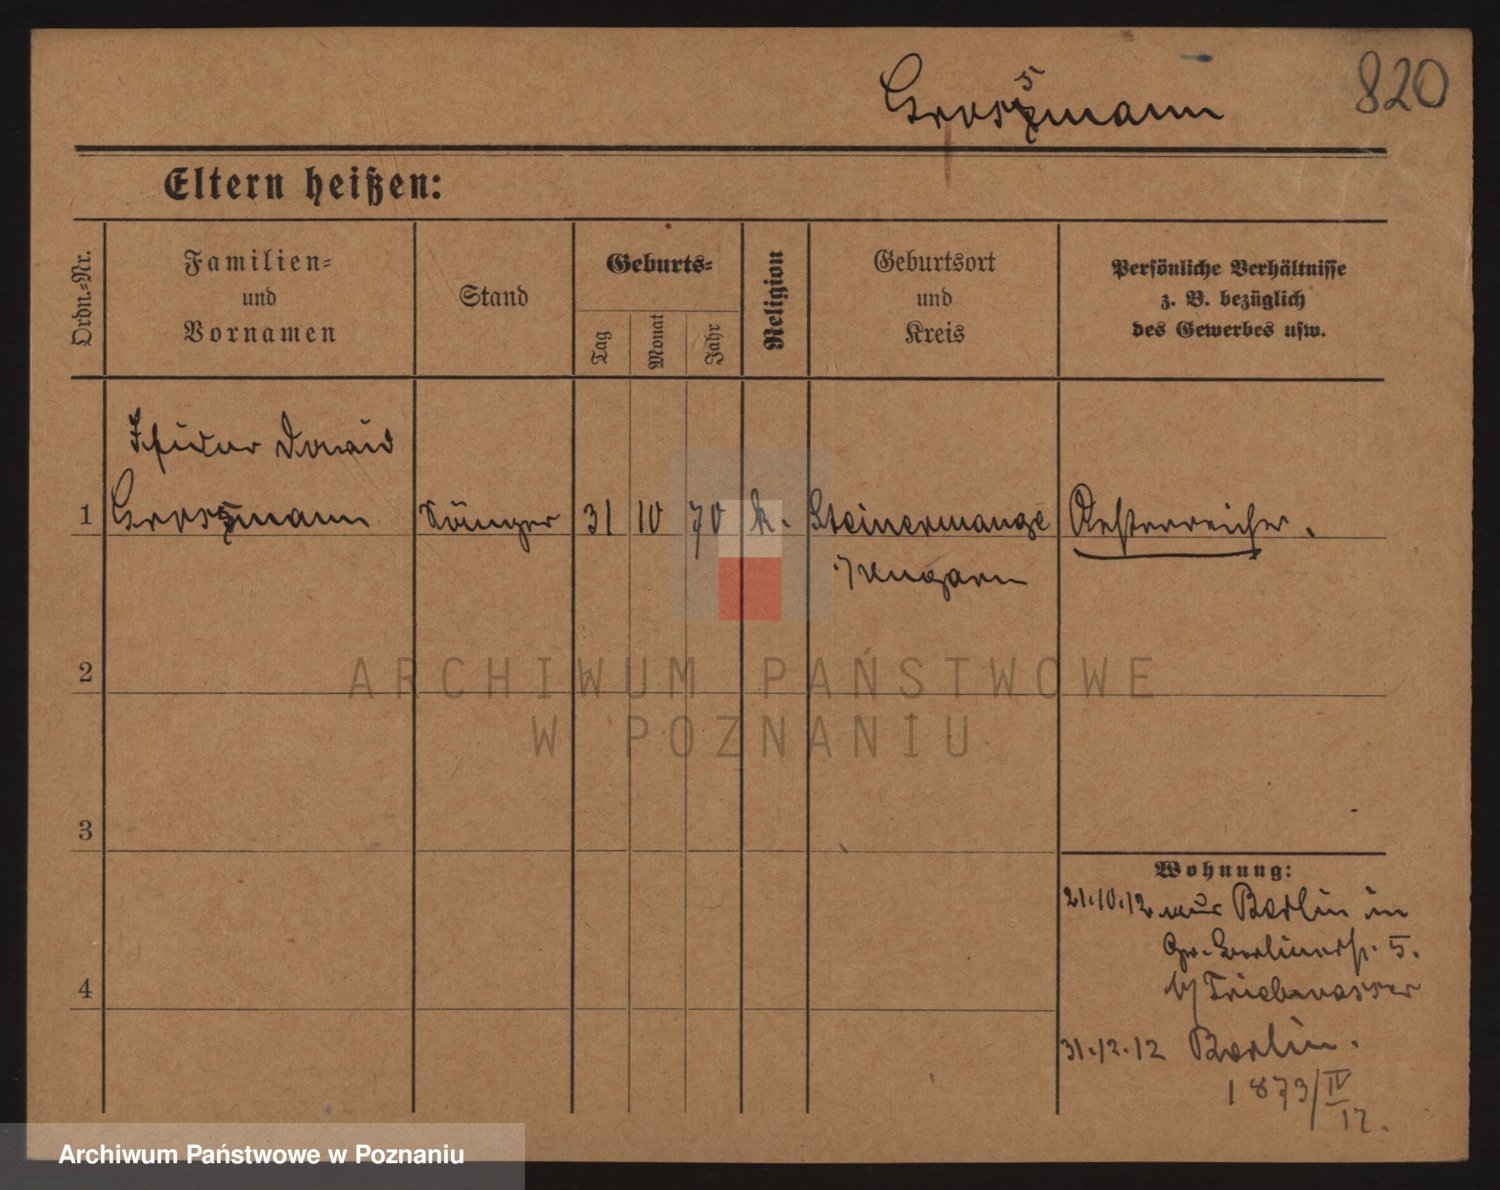 820
Grossmann
Eltern heißen:
Ordn.-Nr.
Familien-
und
Vornamen
Stand
Geburts-
Tag
Monat
Jahr
Religion
Geburtsort
und
Kreis
Persönliche Verhältnisse
z. B. bezüglich
des Gewerbes usw.
Isidor
1 Grossmann Sänger 31 10 70 k. Steinamange Oesterreicher.
Ungarn
2
ARCHIWUM PAŃSTWOWE
W POZNANIU
3
4
Wohnung:
21.10.12 aus Berlin in
Gr. Berlinerstr. 5.
b/ Triebwasser
31.12.12 Berlin.
1873/IV
12.
Archiwum Państwowe w Poznaniu